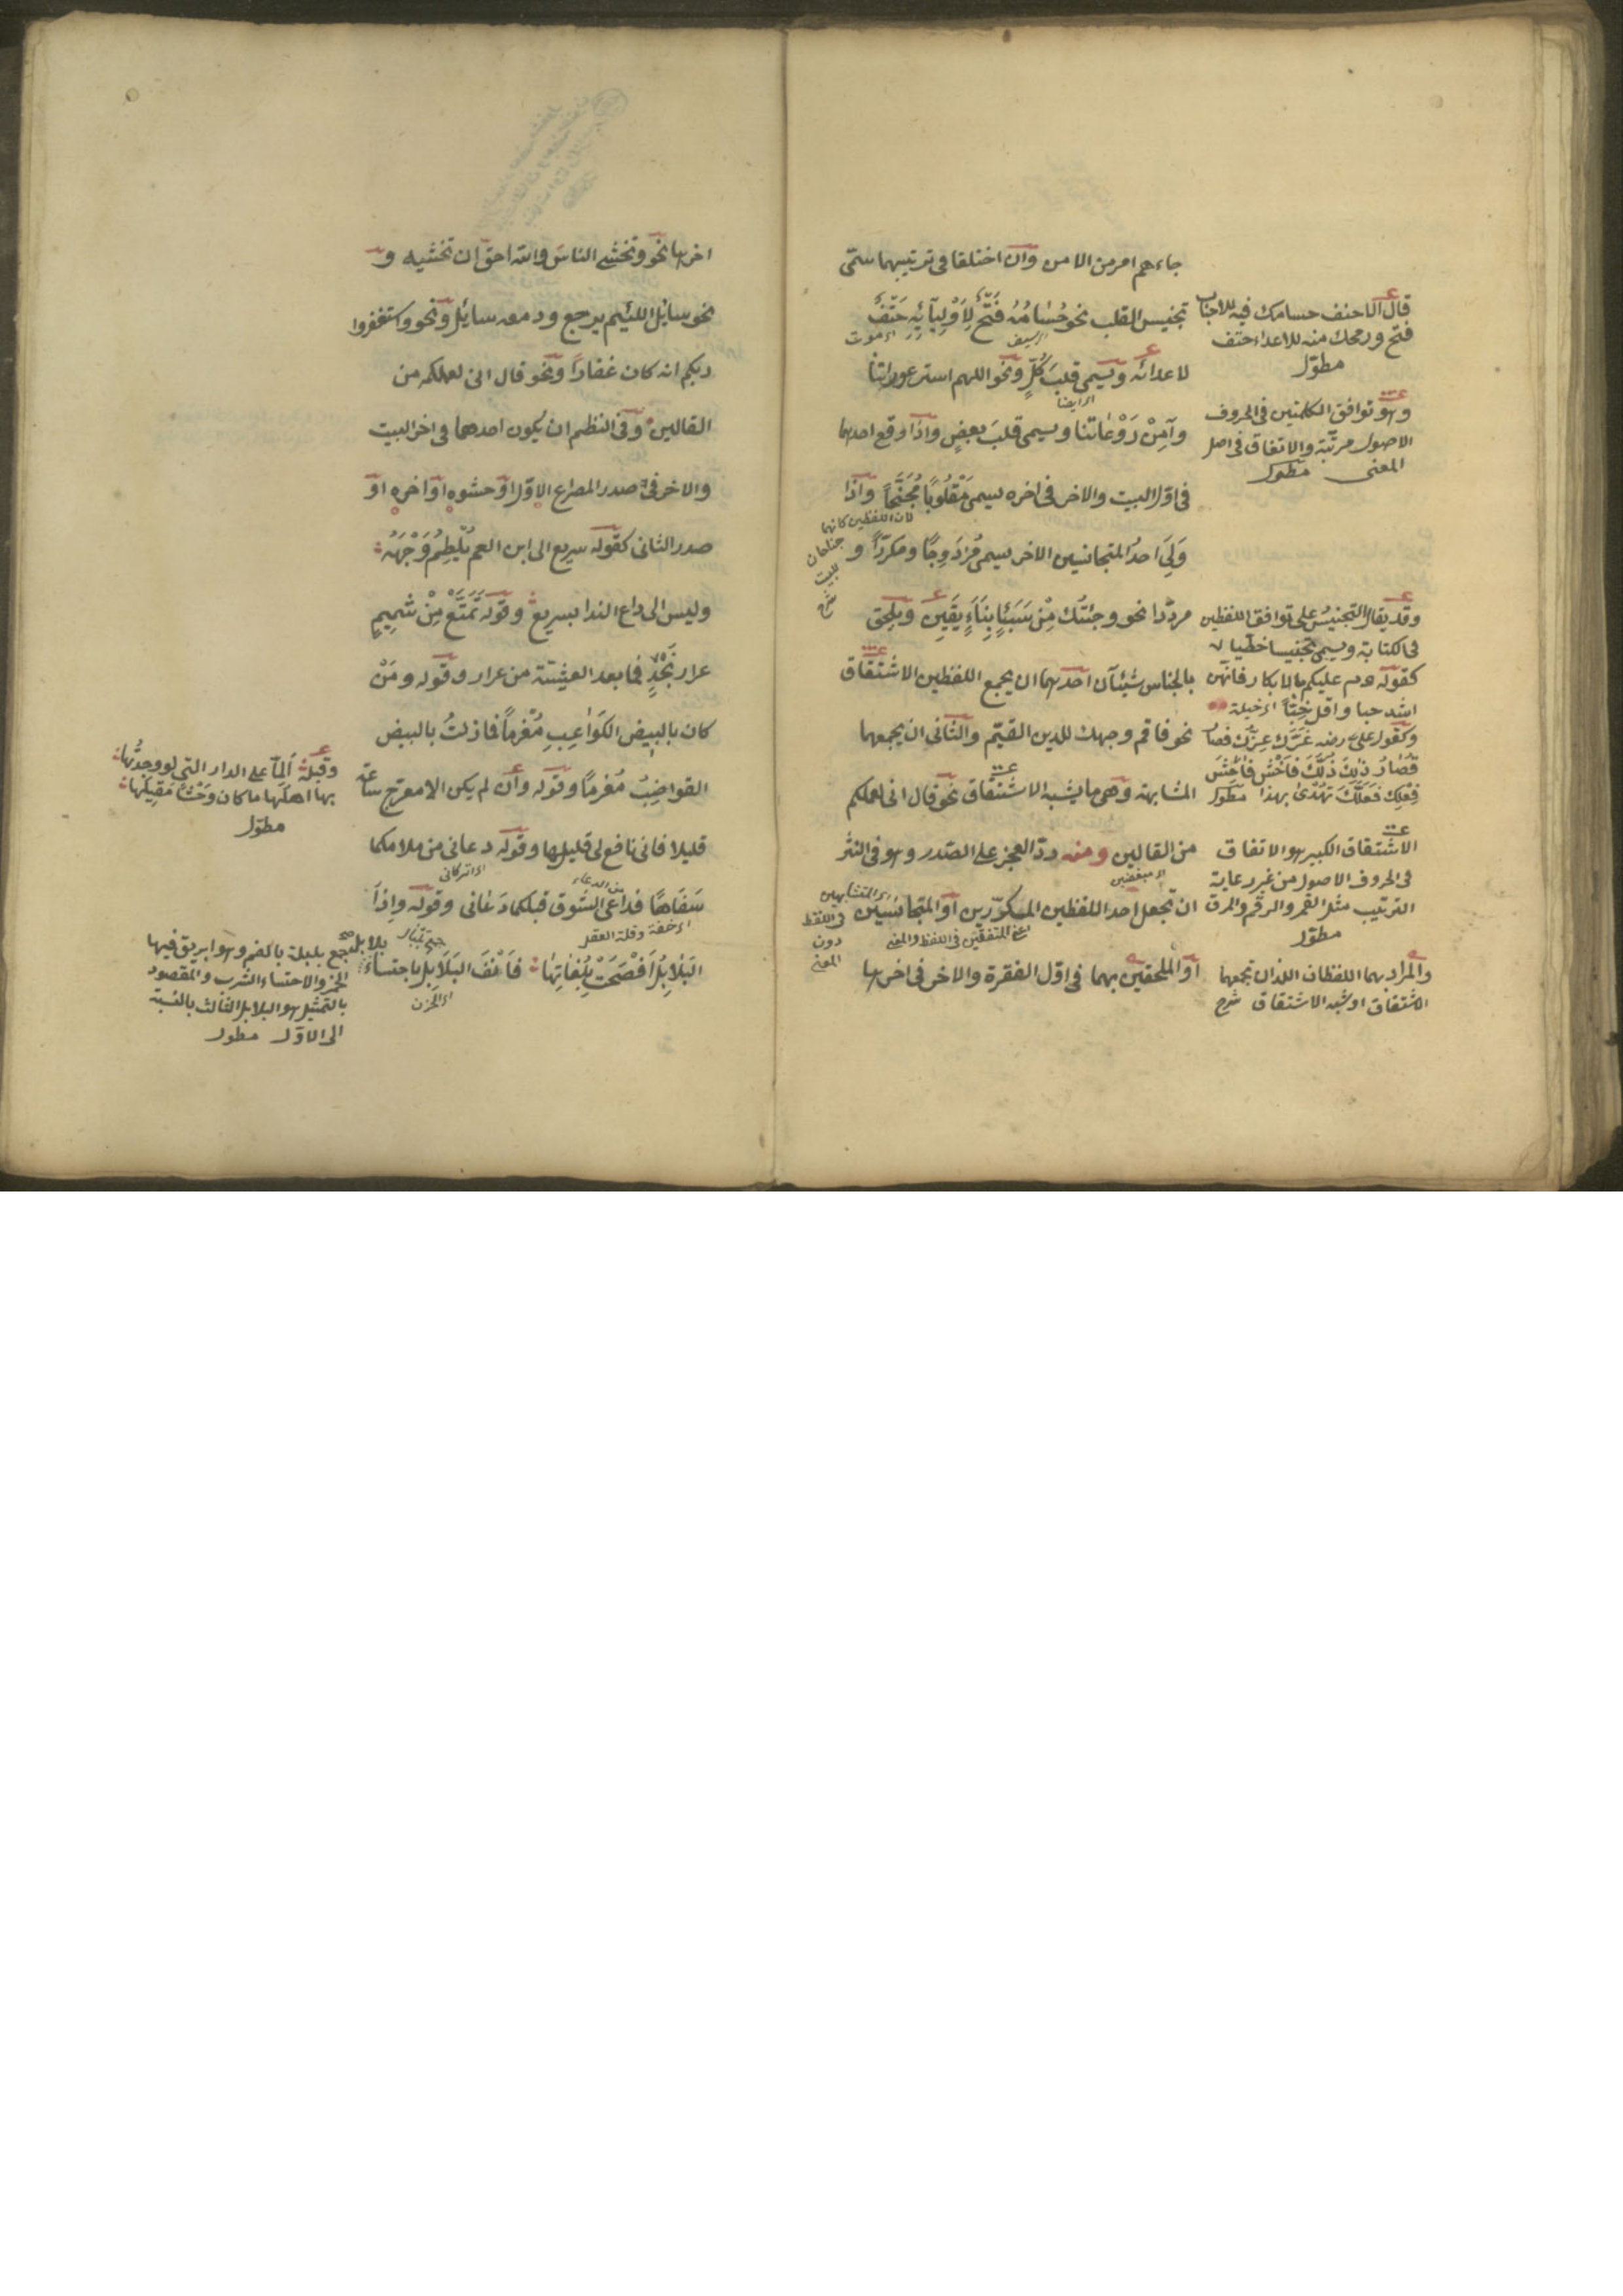 جاءهم امر من الامن وان اختلفا في ترتيبهما سمّى
تجنيس القلب نحو حُسَامُهُ فَتْحٌ لِاَوْلِيَآئِهِ حَتْفٌ
اى سيف
اى موت
لاعدائه ويسمى قلبَ كُلٍّ ونحو اللهم استر عوراتنا
اى ايضا
وآمِنْ رَوْعَاتنا ويسمى قلبَ بعضٍ واذا وقع احدهما
فى اوّل البيت والاخر فى اخره يسمى مَقْلُوبًا مُجَنَّحًا واذا
لان اللفظين كانهما
جناحان
للبيت
شرح
وَلِىَ احدُ المتجانسين الاخر يسمى مُزدَوِجًا ومكررًّا و
مردّدا نحو وجئتك مِنْ سَبَبَإٍ بِنَبَاءٍ يَقَينٍ ويلحق
بالجناس شيئان احدهما ان يجمع اللفظين الاشتقاق
نحو فاقم وجهك للدين القيّم والثانى ان يجمعهما
المشابهة وهى ما يشبه الاشتقاق نحو قال انى لعملكم
من القالين ومنه ردّ العجز على الصّدر وهو فى النثر
اى مبغضين
ان تجعل احد اللفظين المكرّرين او المتجانسين
اى المتفقين فى اللفظ والمعنى
اى المتشابهين
فى اللفظ
دون
المعنى
او الملحقين بهما فى اوّل الفقرة والاخر فى اخرها
قال الاحنف حسامك فيه للاحباب
فتح ورمحك منه للاعداء حتف
مطوّل
وهو توافق الكلمتين فى الحروف
الاصول مرتّبة والاتفاق فى اصل
المعنى مطول
وقد يقال التجنيسُ على توافق اللفظين
فى الكتابة ويسمى تجنيسا خطيا
كقوله عم عليكم بالابكار فانّهن
اشد حبا واقل خِبًّا
وكقول على رضه غَرَّكَ عِزُّكَ فصَارَ
قُصَارُ ذٰلِكَ ذُلَّكَ فَاخْشَ فَاحِشَ
فِعْلِكَ فَعَلَّكَ تُهْدَىٰ بهذا مطول
الاشتقاق الكبير هو الاتفاق
فى الحروف الاصول من غير رعاية
الترتيب مثل القمر والرقم والمرق
مطوّل
والمراد بهما اللفظان اللذان يجمعهما
الاشتقاق او شبه الاشتقاق شرح
اخرها نحو وتخشى الناسَ والله احقّ ان تخشيه و
نحو سائل اللئيم يرجع ودمعه سائل ونحو واستغفروا
ربكم انه كان غفارًا ونحو قال انى لعملكم من
القالين وفى النظم ان يكون احدهما فى اخر البيت
والاخر فى صدر المصراع الاوّل او حشوه او اخره او
صدر الثانى كقوله سريع الى ابن العم يُلْطِمُ وَجْهَهُ
وليس الى داع الندا بسريع وقوله تَمَتَّعْ مِنْ شَمِيمِ
عرار نَجْدٍ فما بعد العشيّة من عرار وقوله ومَنْ
كان بالبيض الكَوَاعِبِ مُغْرمًا فما زلتُ بالبيض
القواضِبُ مُغرمًا وقوله وان لم يكن الا معرج ساعة
قليلا فانى نافع لى قليلها وقوله دعانى من ملامكما
اى اتركانى
سَفَاهًا فداعى الشوق قبلكما دَعَانى وقوله واِذَا
من الدعاء
اى خفة وقلة العقل
البَلَابِلُ اَفْصَحَتْ بِلُغَاتِهَا فَاَنْفِ البَلَابِلَ باحتساء بلابل
اى الحزن
وقبله اَلِمَّا على الدار التى لو وجدتُها
بها اهلَها ما كان وَحْشًا مَقِيلُها
مطوّل
جمع بلبلة بالضم وهو ابريق فيها
الخمر والاحتساء الشرب والمقصود
بالتمثيل هو البلابل الثالث بالنسبة
الى الاوّل مطول